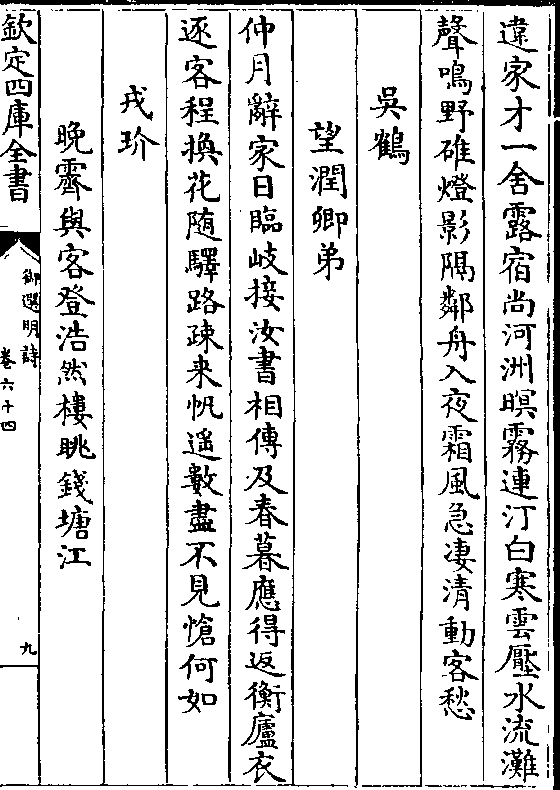 違家才一舍露宿尚河洲暝霧連汀白寒雲壓水流灘
聲鳴野碓燈影隔鄰舟入夜霜風急凄清動客愁
吳鶴
望潤卿弟
仲月辭家日臨岐接汝書相傳及春暮應得返衡廬衣
逐客程換花随驛路疎来帆遥數盡不見愴何如
戎玠
晩霽與客登浩然樓眺錢塘江
欽定四庫全書
御選明詩
卷六十四
九